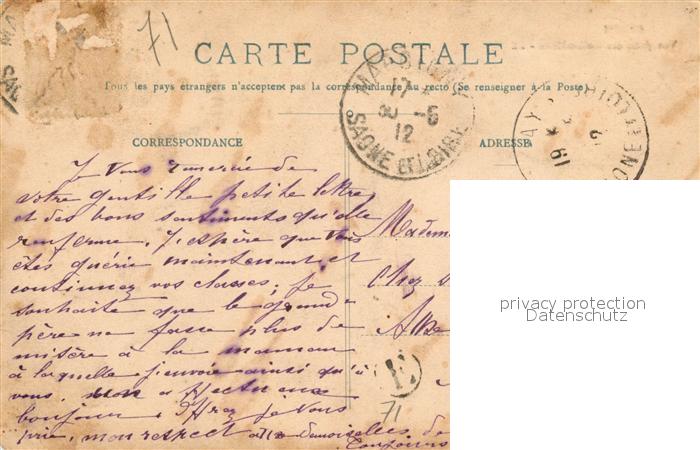 71
CARTE POSTALE
Tous les pays étrangers n'acceptent pas la correspondance au recto (Se renseigner à la Poste)
17
30 -5
12
SAONE ET LOIRE
CORRESPONDANCE
ADRESSE
Je vous remercie de
votre gentille petite lettre
et des bons sentiments qu'elle
renferme. J'espère que vous
êtes guérie maintenant et
continuez vos classes; je
souhaite que le grand-
père ne fasse plus de
misère à la maman
à laquelle j'envoie ainsi qu'à
vous, mon affectueux
bonjour. je vous
prie, mon respect Demoiselles de
Madem
Chez
E
71
privacy protection
Datenschutz